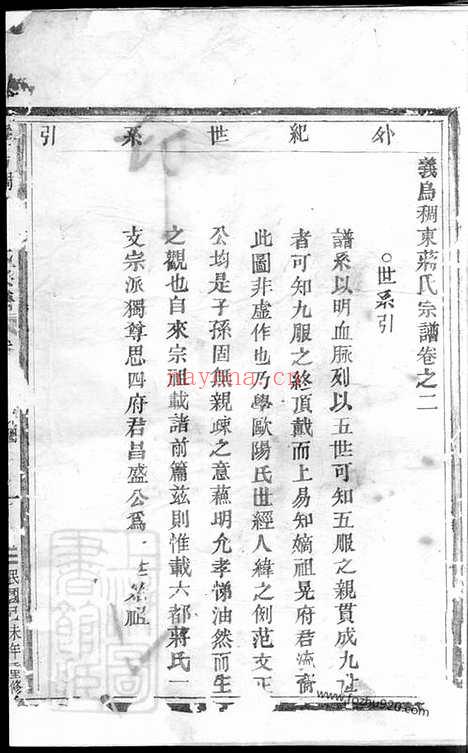 外紀世系引
義烏稠東蔣氏宗譜卷之二
○世系引
譜系以明血脈列以五世可知五服之親貫成九世
者可知九服之終頂戴而上易知嫡祖晃府君流裔
此圖非虛作也乃學歐陽氏世經人緯之例范文正
公均是子孫固無親疎之意蘓明允孝悌油然而生
之觀也自來宗祖載諸前篇茲則惟載六都蔣氏一
支宗派獨尊思四府君昌盛公爲一世
祖
民國己未年重修
nayona.cn
www.fozhu920.com